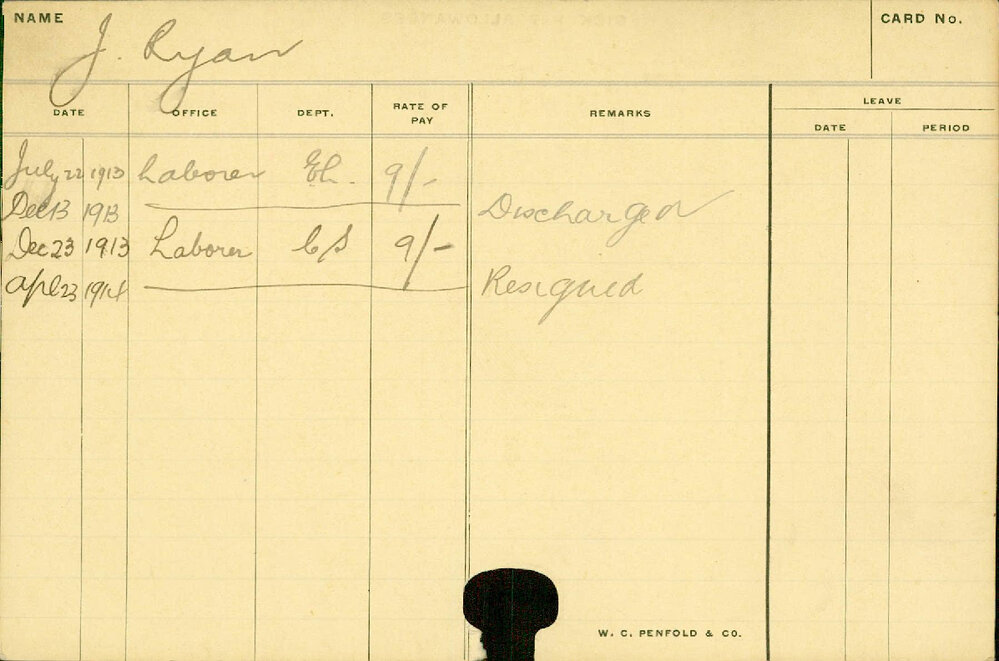 NAME
CARD No.
J. Ryan
DATE OFFICE DEPT. RATE OF PAY REMARKS LEAVE
DATE PERIOD
July 22 1913 Laborer El. 9/-
Dec 13 1913 Discharged
Dec 23 1913 Laborer CS 9/-
Apl 23 1914 Resigned
W. C. PENFOLD & CO.